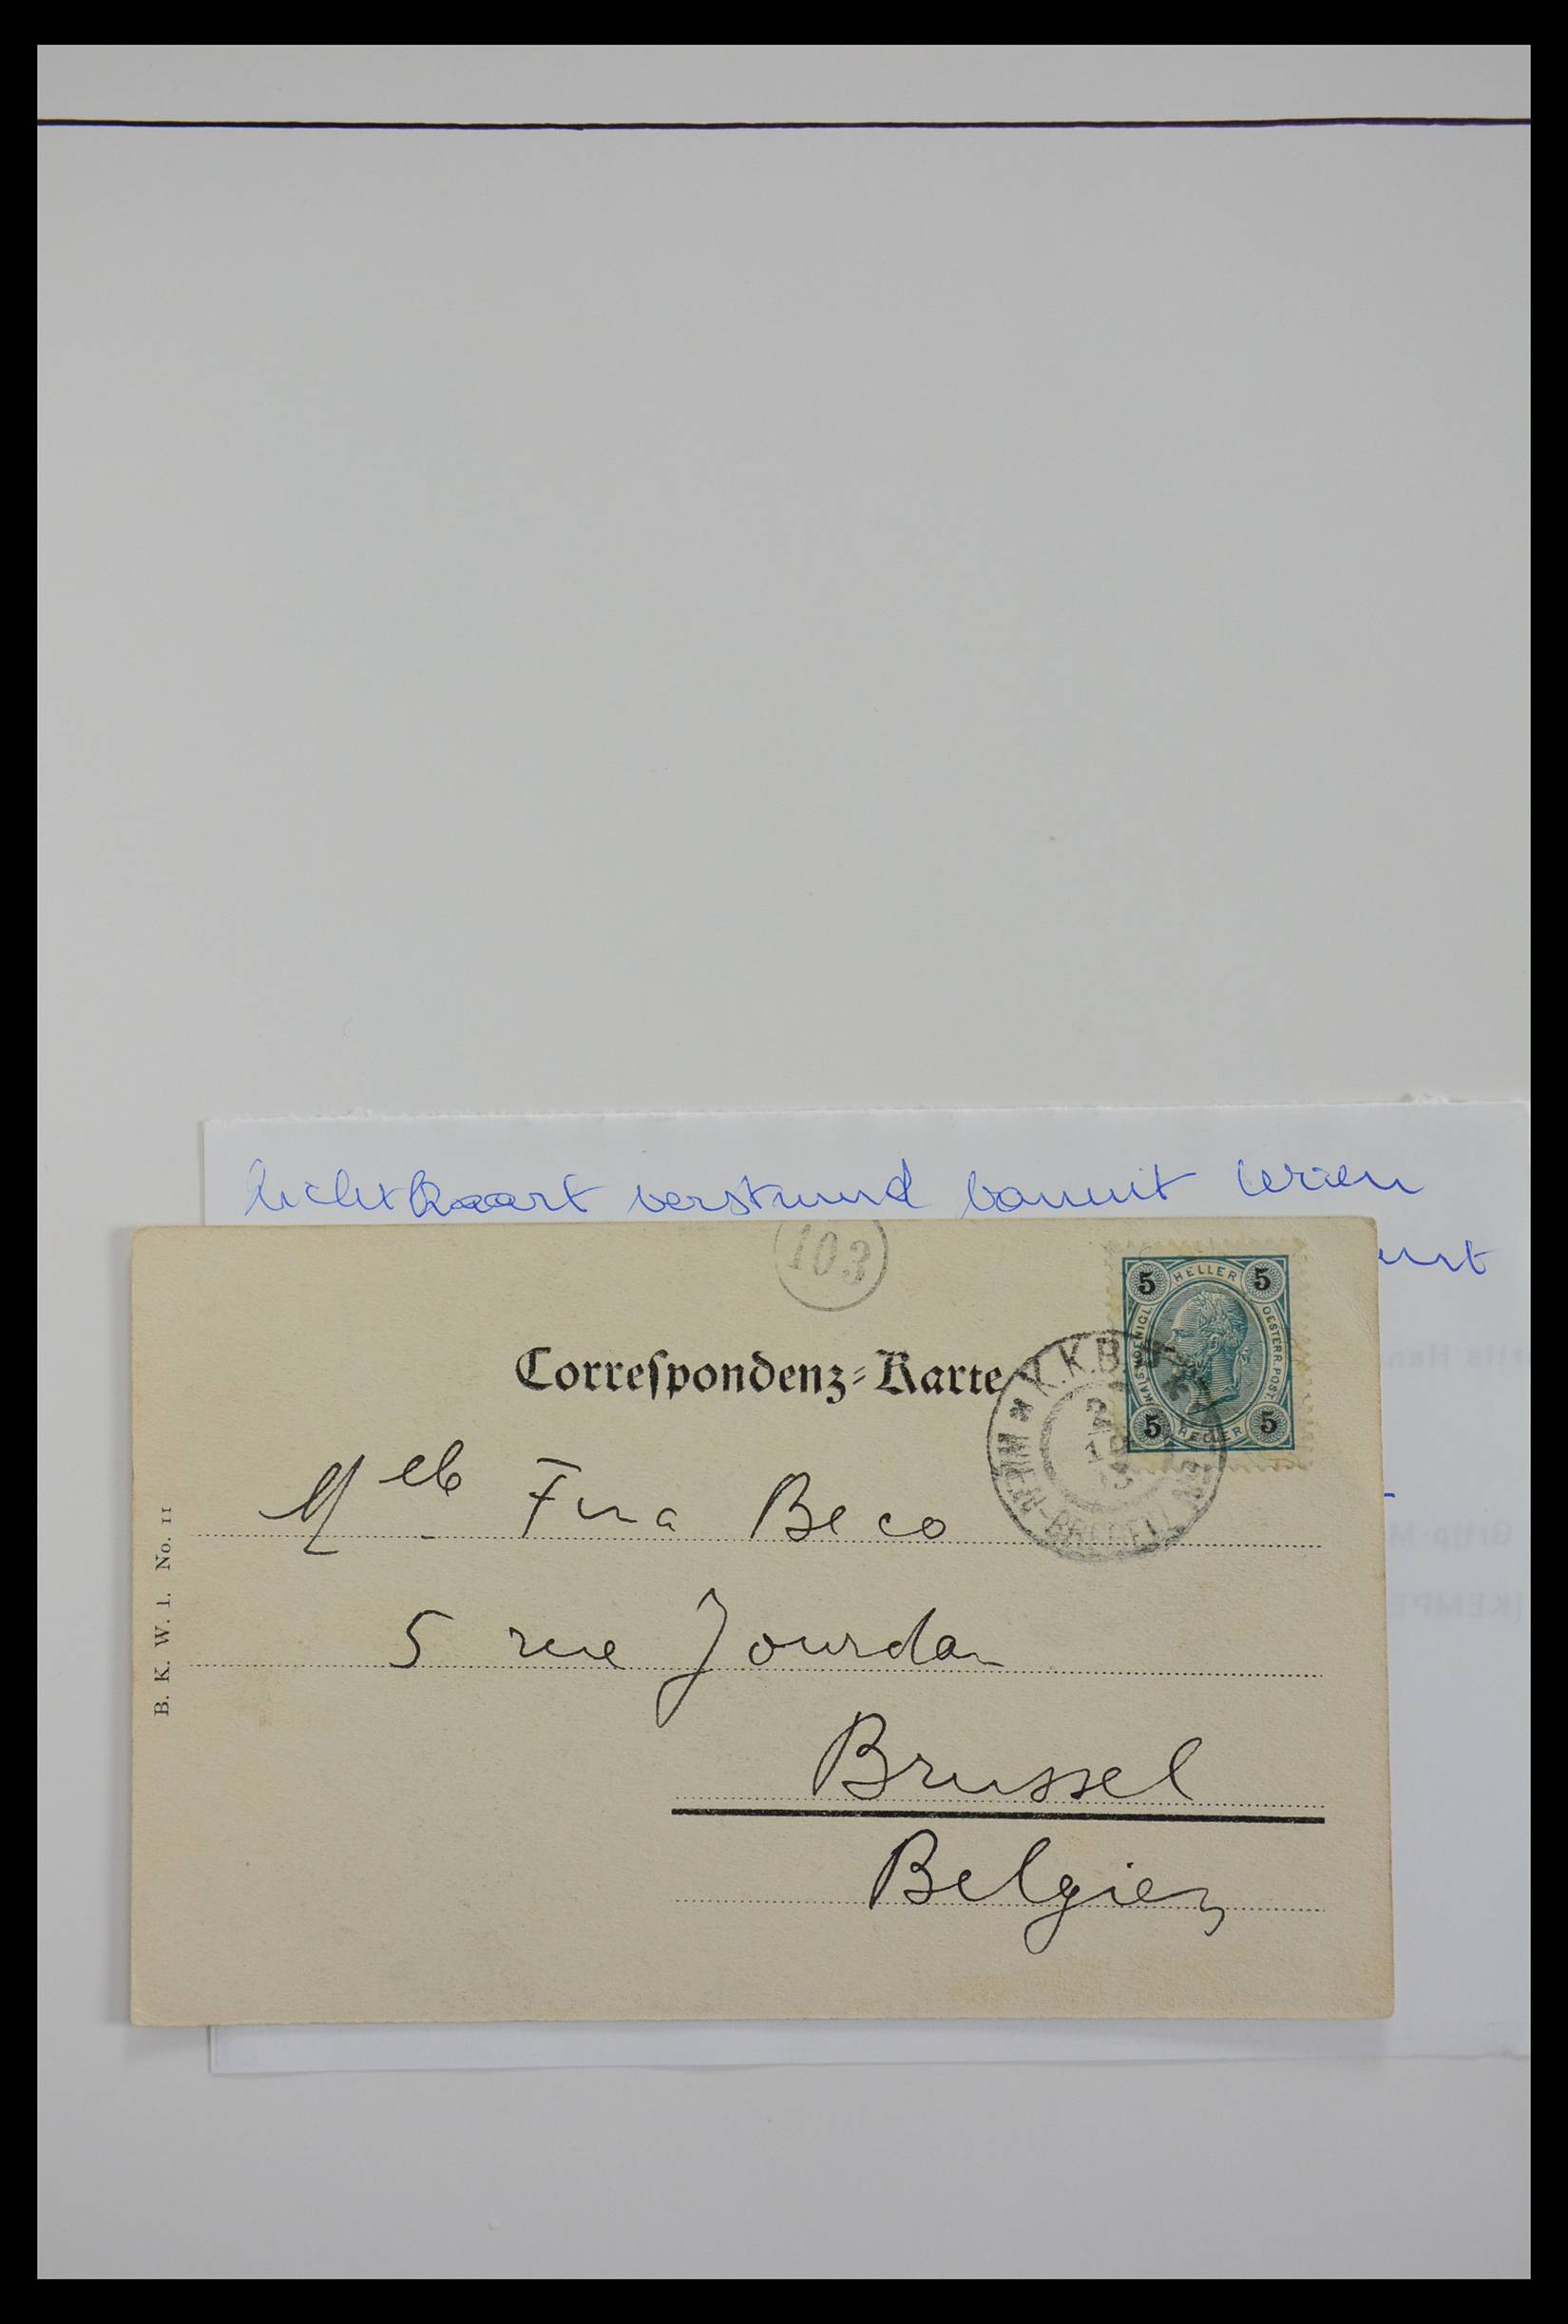 lichtkaart verstuurd vanuit Wien
103
5 HELLER 5
KAIS. KOENIGL. OESTERR. POST
5 HELLER 5
Correspondenz-Karte
K.K.B.
WIEN
Mlle Fina Beco
5 rue Jourdan
Brussel
Belgien
B. K. W. I. No. 11